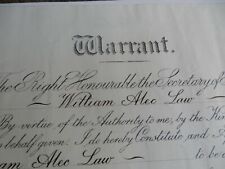 Warrant.
The Right Honourable the Secretary of
William Alec Law
By virtue of the Authority to me, by the Kin
behalf given. I do hereby Constitute and A
am Alec Law to be a